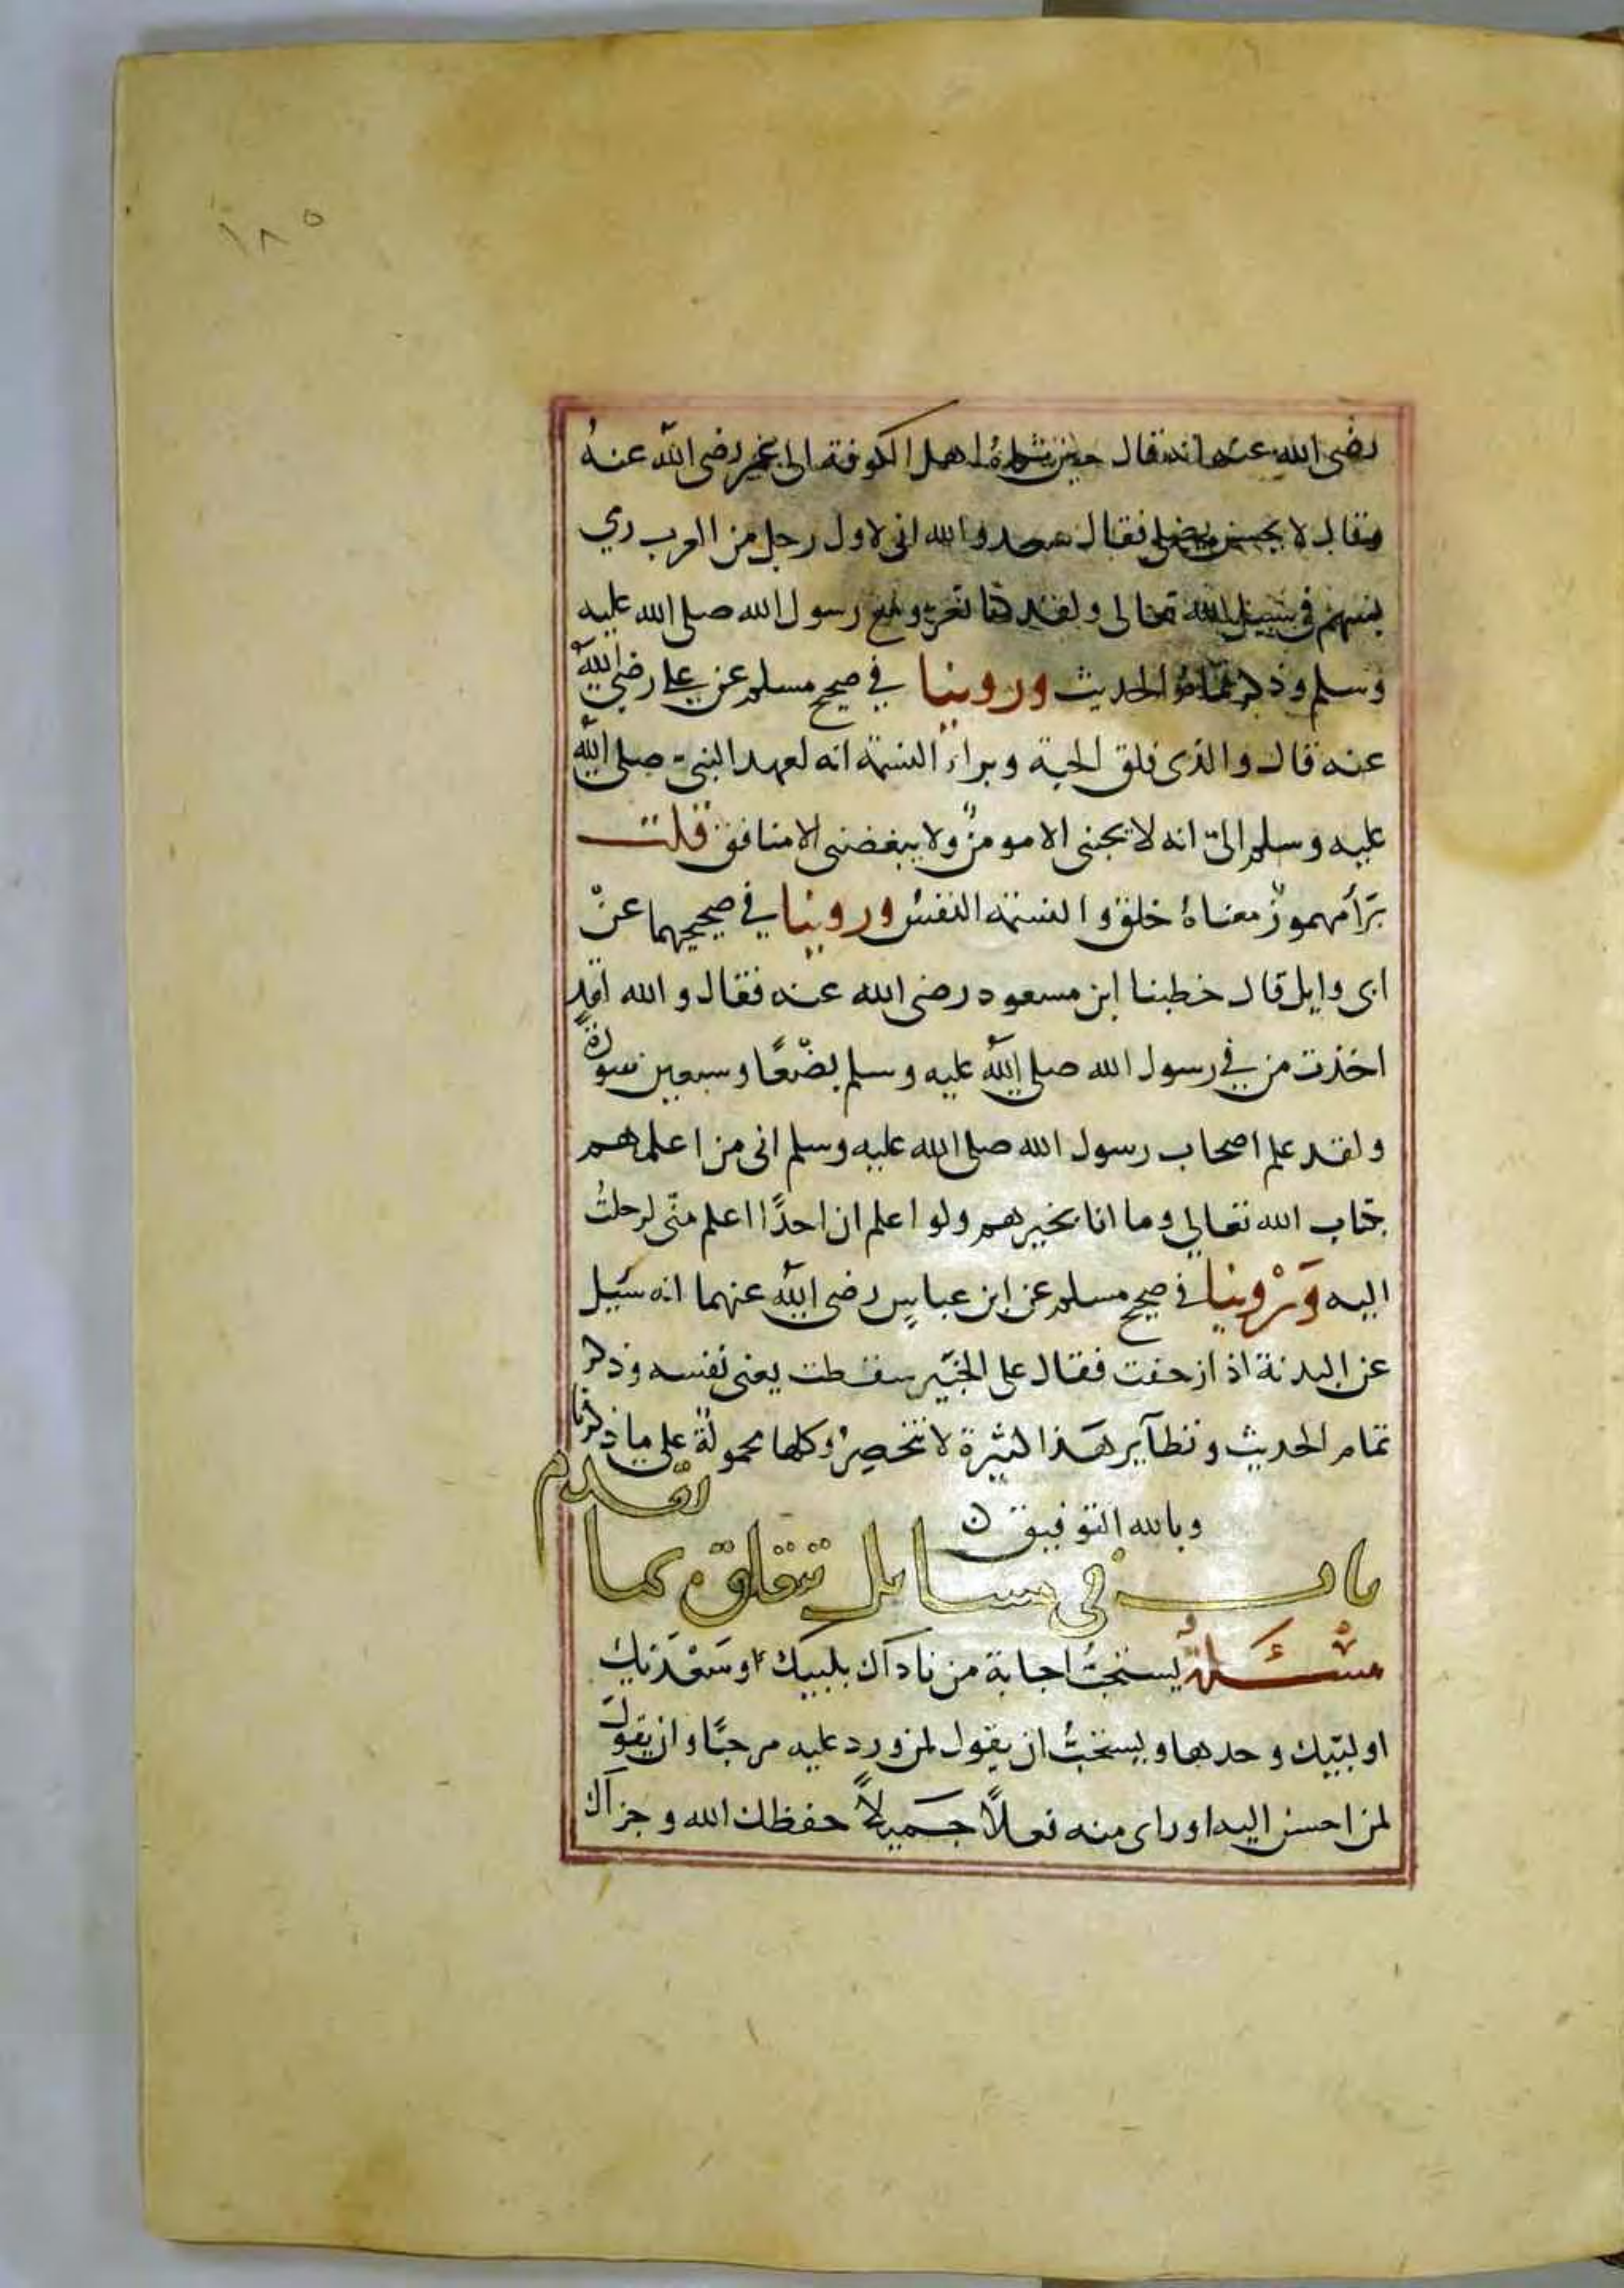 ١٨٥
رضى الله عنه انه قال حين شكاهُ اهل الكوفة الى عمر رضى الله عنهُ
وقال لا يحسن يصلى فقال سعد والله انى لاول رجل من العرب رمي
بسهم فى سبيل الله تعالى ولقد كنا نغزو مع رسول الله صلى الله عليه
وسلم وذكر تمام الحديث وروينا في صحيح مسلم عن على رضى الله
عنه قال والذى فلق الحبة وبراء النسمة انه لعهد النبى صلى الله
عليه وسلم الىّ انه لا يحبنى الا مومنٌ ولا يبغضنى الا منافق قلت
بَرَأَ مهموز معناهُ خلق والنسمة النفس وروينا في صحيحيهما عنْ
ابى وايل قال خطبنا ابن مسعود رضى الله عنه فقال والله لقد
اخذت من في رسول الله صلى الله عليه وسلم بضعًا وسبعين سورةً
ولقد علم اصحاب رسول الله صلى الله عليه وسلم انى من اعلمهم
بكتاب الله تعالى وما انا بخيرهم ولو اعلم ان احدًا اعلم منّى لرحلتُ
اليه وَرْوينا في صحيح مسلم عن ابن عباسٍ رضى الله عنهما انه سَيل
عن البدنة اذا ازحفت فقال على الخبير سقطت يعنى نفسه وذكر
تمام الحديث ونظآير هذا كثيرة لا تنحصِرُ وكلها محمولة على ما ذكرنا
وبالله التوفيق ن
باب فى مسايل تتعلق بما تقدم
مسْئَلةُ يستحبُّ اجابة من ناداك بلبيك وسَعْدَيك
او لبّيك وحدها ويستحبُّ ان يقول لمن ورد عليه مرحبًا وان يقولَ
لمن احسن اليه او راى منه فعلاً جَميلاً حفظك الله وجزآك